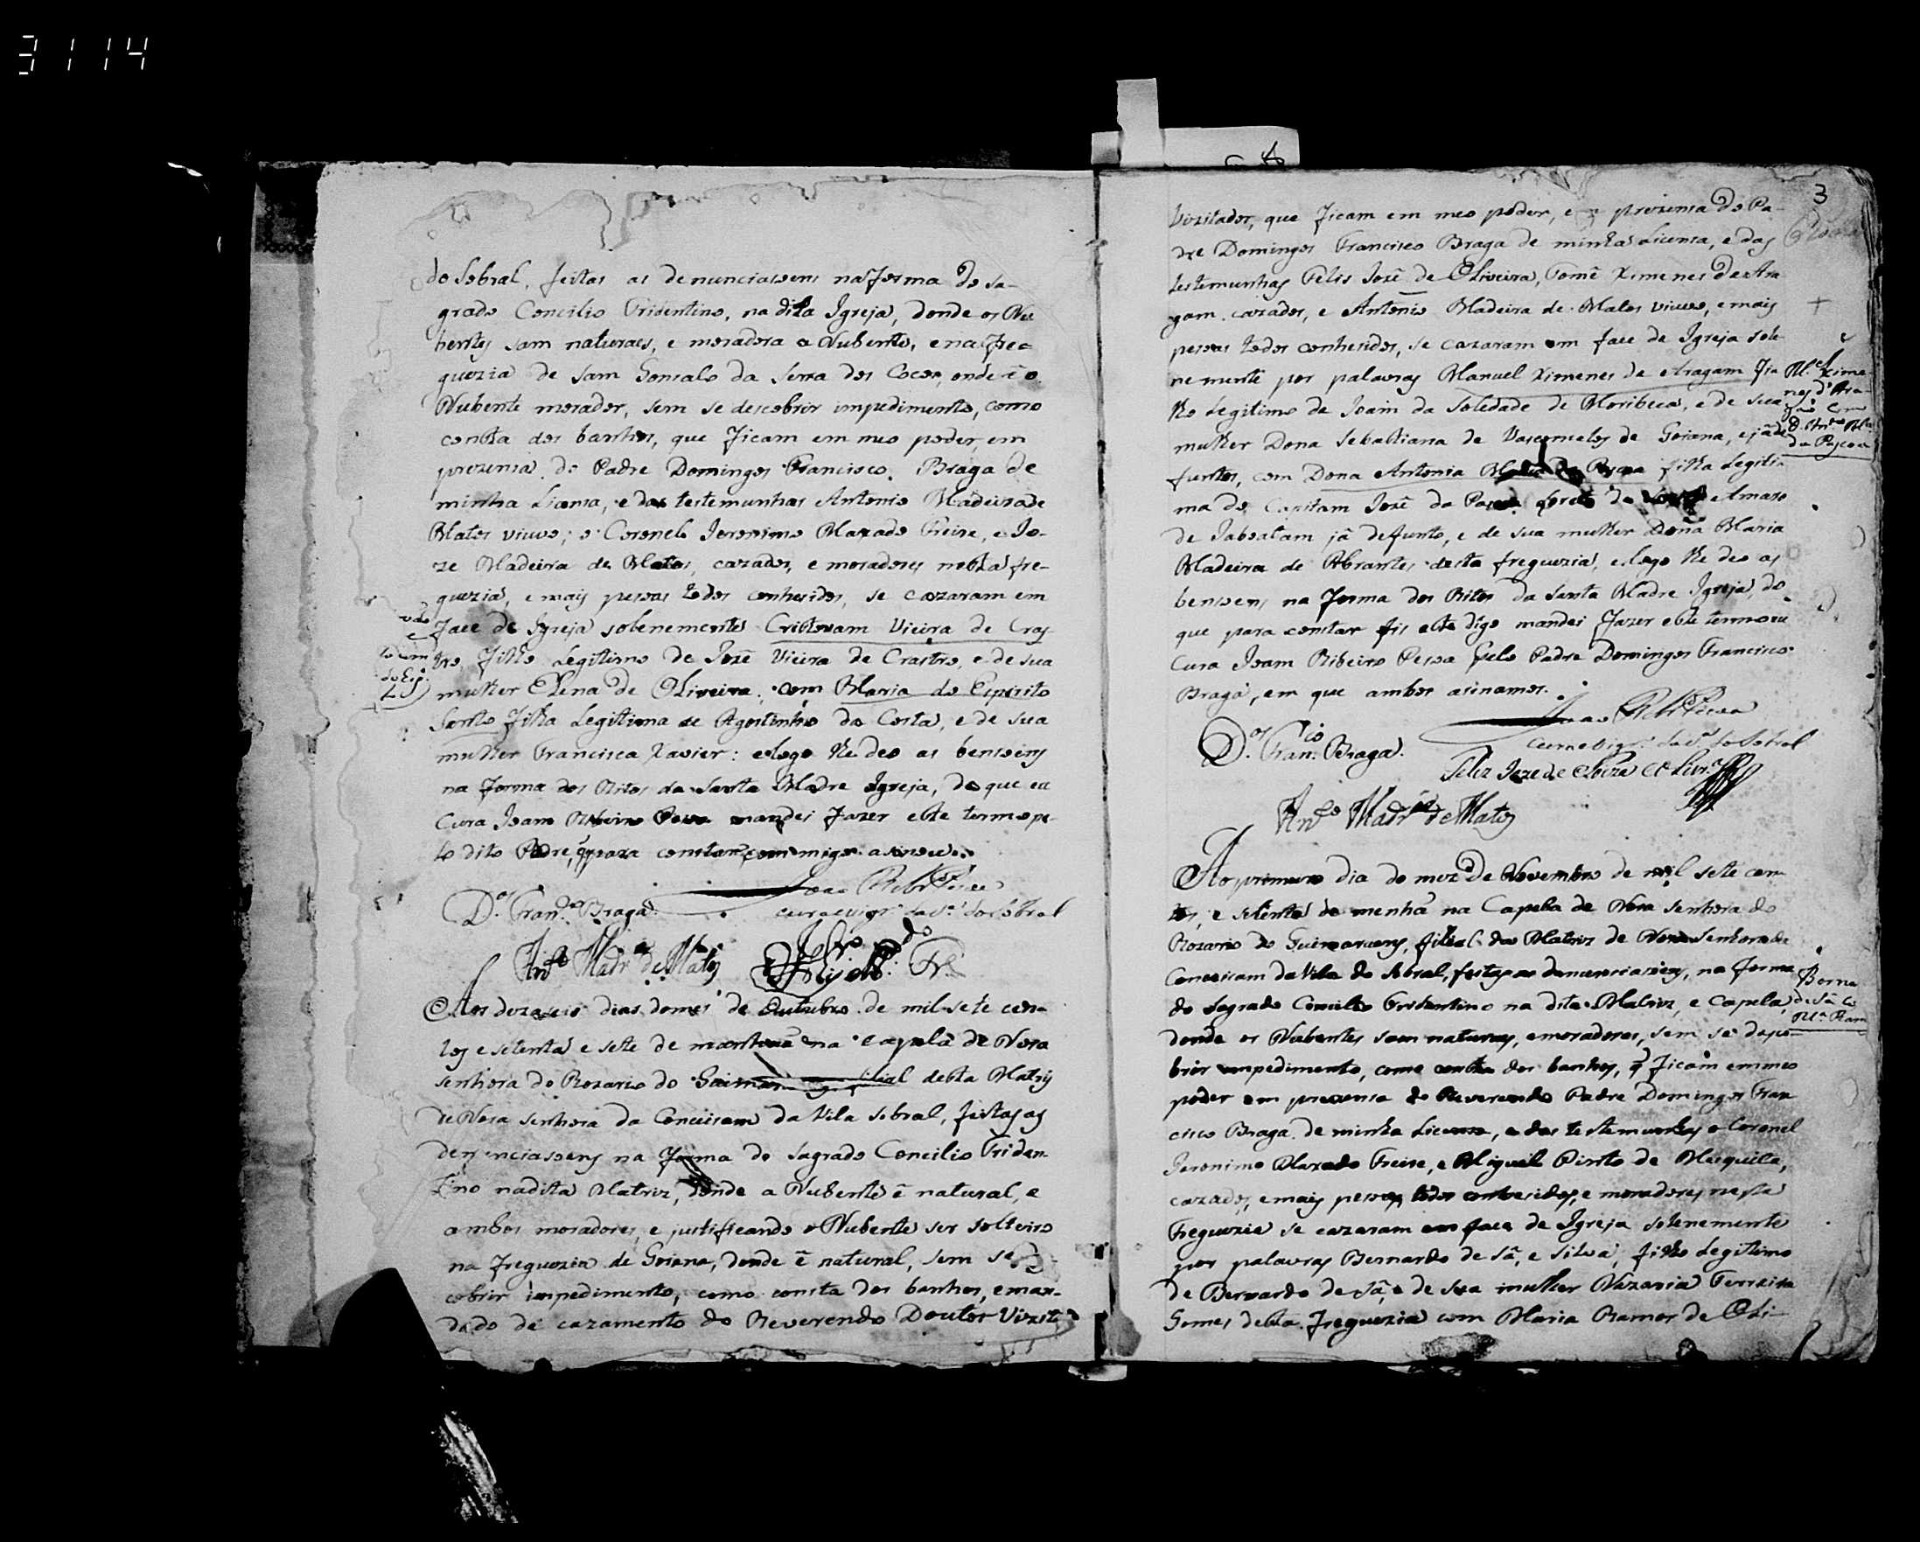 3114
do Sobral, feitas as denunciasoens na forma do Sa-
grado Concilio Tridentino, na dita Igreja, donde os Nu
bentes sam naturaes, e moradora a Nubente, e na fre-
guezia de Sam Gonsalo da Serra dos Cocos, onde é o
Nubente morador, sem se descobrir impedimento, como
consta dos banhos, que ficam em meo poder, em
prezensa do Padre Domingos Francisco Braga de
minha Licensa, e das testemunhas Antonio Madeira de
Matos viuvo, o Coronel Jeronimo Maxado Freire, e Jo-
ze Madeira de Matos, cazados, e moradores nesta fre-
guezia, e mais pesoas todos conhesidos, se cazaram em
face de Igreja solenemente Cristovam Vieira de Cras
to, filho Legitimo de Jozé Vieira de Crastro, e de sua
mulher Elena de Oliveira, com Maria do Espirito
Santo filha Legitima de Agostinho da Costa, e de sua
mulher Francisca Xavier: e logo lhe deo as bensoens
na forma dos Ritos da Santa Madre Igreja, do que eu
Cura Joam Ribeiro Pesoa mandei fazer este termo pe-
lo dito Padre, q para constar comigo asinou.
Joao Ribr.o Pesoa
D.os Fran.co Braga
cura e vigr.o da V.a do Sobral
Ant.o Madr.a de Matos
Aos dezaseis dias do mes de Outubro de mil sete cen-
tos e setenta e sete de manhaã na Capela de Nosa
senhora do Rozario do filial desta Matris
de Nosa senhora da Conceisam da Vila Sobral, feitas as
denunciasoens na forma do Sagrado Concilio Triden-
tino na dita Matriz, donde a Nubente é natural, e
ambos moradores, e justificando o Nubente ser solteiro
na freguezia de Goiana, donde é natural, sem se des
cobrir impedimento, como consta dos banhos, e man-
dado de cazamento do Reverendo Doutor Vizita
3
Vizitador, que ficam em meo poder, e prezensa do Pa-
dre Domingos Francisco Braga de minha Licensa, e das
testemunhas Felis Jozé de Oliveira, Tomé Ximenes de Ara
gam cazados, e Antonio Madeira de Matos viuvo, e mais
pesoas todos conhesidos, se cazaram em face de Igreja sole-
nemente por palavras Manuel Ximenes de Aragam fi
lho Legitimo de Joam da Soledade de Moribeca, e de sua
mulher Dona Sebastiana de Vasconselos de Goiana, e já de
funtos, com Dona Antonia filha Legiti-
ma do Capitam Jozé da
de Jaboatam já defunto, e de sua mulher Dona Maria
Madeira de Abrantes desta freguezia, e logo lhe deo as
bensoens na forma dos Ritos da Santa Madre Igreja, do
que para constar fis este digo mandei fazer este termo eu
Cura Joam Ribeiro Pesoa pelo Padre Domingos Francisco
Braga, em que ambos asinamos.
Joao Ribr.o Pesoa
D.os Fran.co Braga.
cura e vigr.o da V.a do Sobral
Feliz Joze de Souza e Olivr.a
Ant.o Madr.a de Matos
Ao primeiro dia do mez de Novembro de mil sete cen
tos, e setenta de menhã na Capela de Nosa senhora do
Rozario do Guimaraens, filial da Matriz de Nosa senhora da
Conceisam da Vila do Sobral, feitas as denunciasoens, na forma
do Sagrado Concilio Tridentino na dita Matriz, e Capela,
donde os Nubentes sam naturaes, e moradores, sem se desco-
brir impedimento, como consta dos banhos, q ficam em meo
poder em prezensa do Reverendo Padre Domingos Fran
cisco Braga de minha Licensa, e das testemunhas o Coronel
Jeronimo Maxado Freire, e Miguel Pinto de Mesquita,
cazados, e mais pesoas todos conhesidos, e moradores nesta
Freguezia se cazaram em face de Igreja solenemente
por palavras Bernardo de Sá, e Silva, filho Legitimo
de Bernardo de Sá, e de sua mulher Nazaria Ferreira
Gomes desta Freguezia com Maria Ramos de Oli-